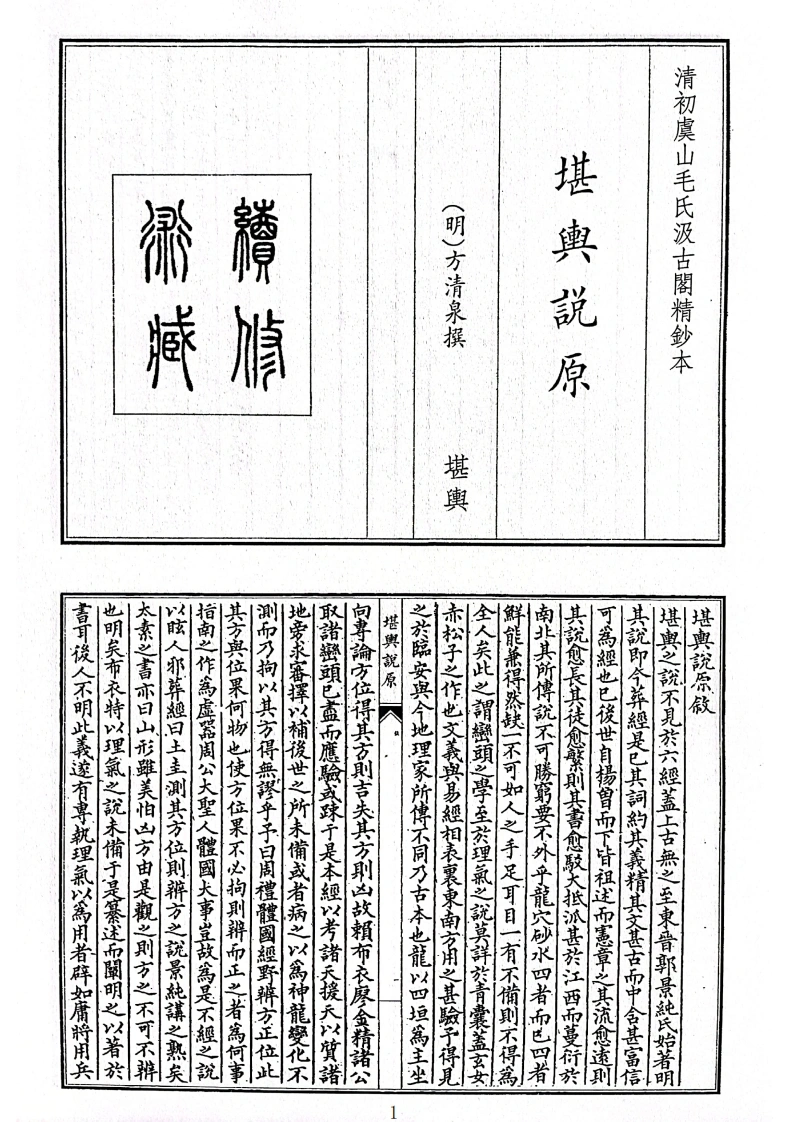 清初虞山毛氏汲古閣精鈔本
堪輿説原
（明）方清泉撰
堪輿
續修
術藏
堪輿説原敘
堪輿之說不見於六經蓋上古無之至東晉郭景純氏始著明
其說即今葬經是已其詞約其義精其文甚古而中含甚富信
可為經也已後世自楊曾而下皆祖述而憲章之其流愈遠則
其說愈長其徒愈繁則其書愈駁大抵派甚於江西而蔓衍於
南北其所傳說不可勝窮要不外乎龍穴砂水四者而已四者
鮮能兼得然缺一不可如人之手足耳目一有不備則不得為
全人矣此之謂巒頭之學至於理氣之說莫詳於青囊蓋玄女
赤松子之作也文義與易經相表裏東南方用之甚驗予得見
之於臨安與今地理家所傳不同乃古本也龍以四垣為主坐
堪輿説原
向專論方位得其方則吉失其方則凶故賴布衣廖金精諸公
取諸巒頭已盡而應驗或踈于是本經以考諸天援天以質諸
地旁求審擇以補後世之所未備或者病之以為神龍變化不
測而乃拘以其方得無謬乎予曰周禮體國經野辨方正位此
其方與位果何物也使方位果不必拘則辨而正之者為何事
指南之作為虛噐周公大聖人體國大事豈故為是不經之說
以眩人邪葬經曰土圭測其方位則辨方之說景純講之熟矣
太素之書亦曰山形雖美怕凶方由是觀之則方之不可不辨
也明矣布衣特以理氣之說未備于是纂述而闡明之以著於
書耳後人不明此義遂有專執理氣以為用者辟如庸將用兵
1